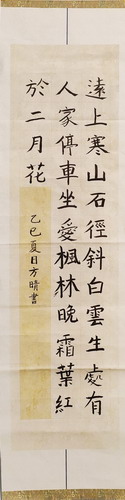 遠上寒山石徑斜白雲生處有
人家停車坐愛楓林晚霜葉紅
於二月花
乙巳夏日方晴書